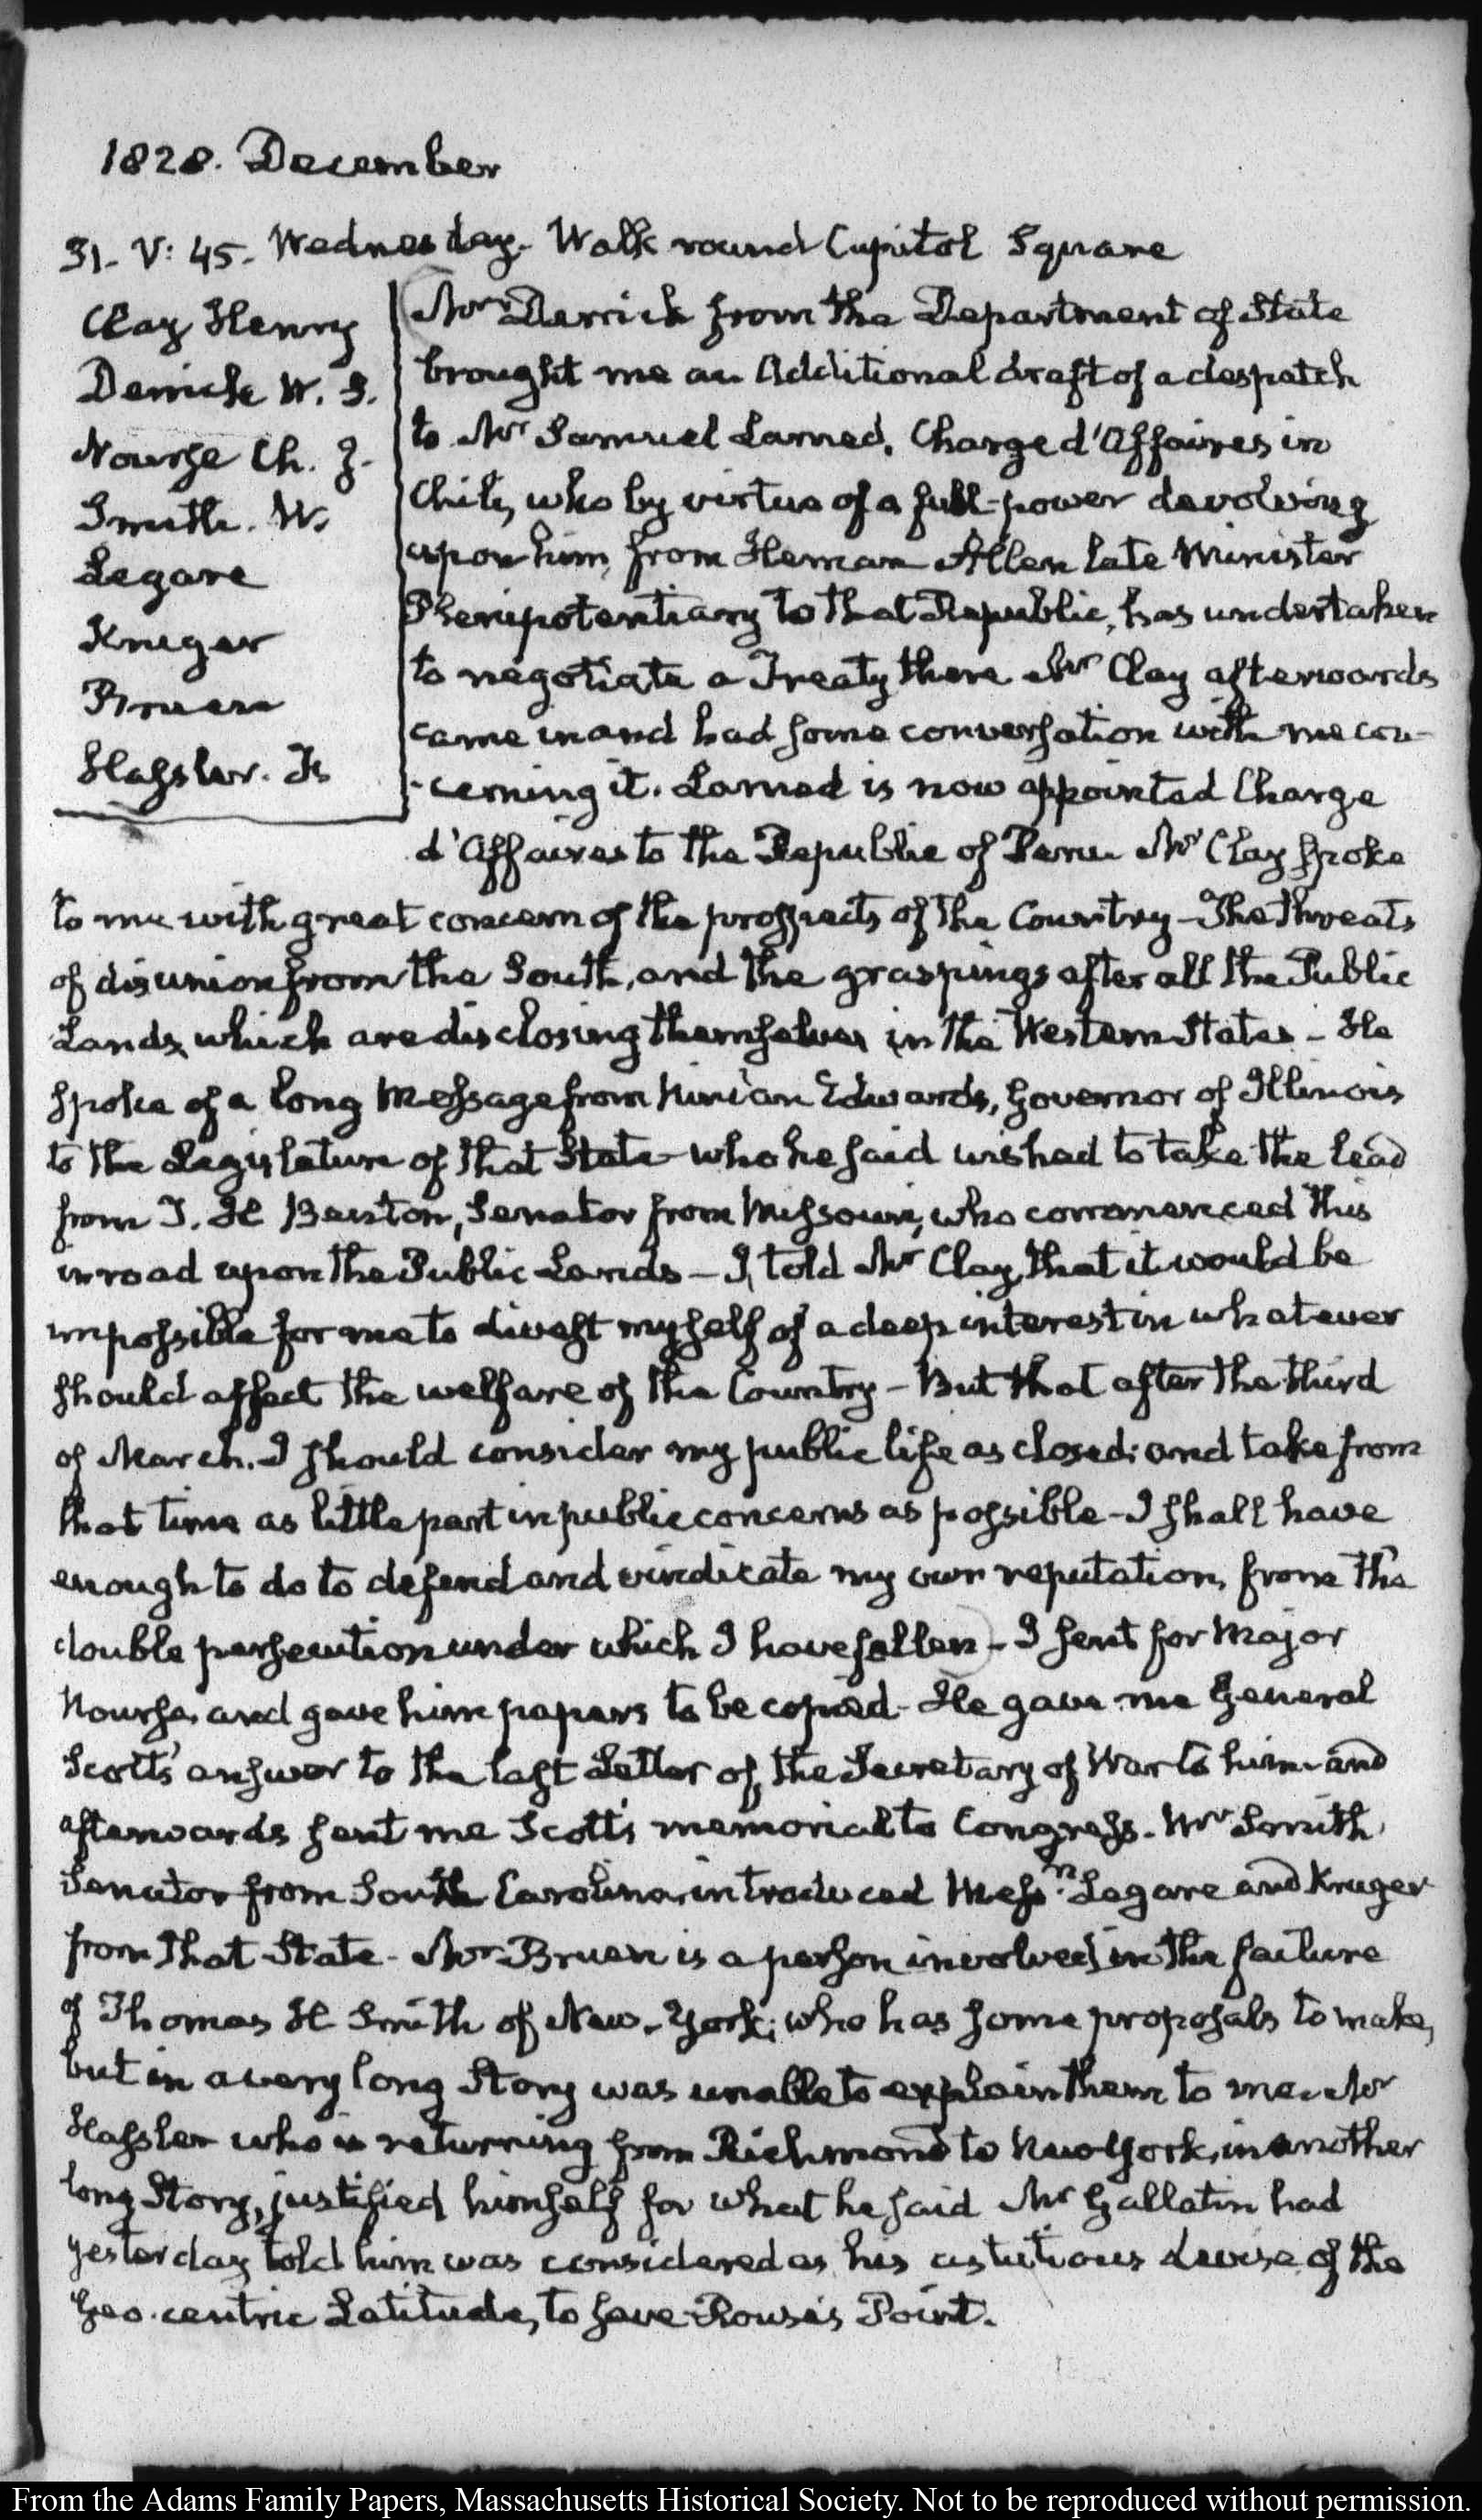 1828. December
31. V: 45. Wednesday. Walk round Capitol Square
Clay Henry
Derrick W. S.
Nourse Ch. J.
Smith. W.
Legare
Kruger
Bruen
Hassler. F.
Mr Derrick from the Department of State
brought me an Additional draft of a despatch
to Mr Samuel Larned, Chargé d'Affaires in
Chili, who by virtue of a full-power devolving
upon him, from Heman Allen late Minister
Plenipotentiary to that Republic, has undertaken
to negotiate a Treaty there Mr Clay afterwards
came in and had some conversation with me con-
-cerning it. Larned is now appointed Charge
d'Affaires to the Republic of Peru Mr Clay spoke
to me with great concern of the prospects of the Country – The threats
of disunion from the South, and the graspings after all the Public
Lands, which are disclosing themselves in the Western States – He
spoke of a long Message from Ninian Edwards, Governor of Illinois
to the Legislature of that State – who he said wished to take the lead
from T. H Benton, Senator from Missouri, who commenced this
inroad upon the Public Lands – I told Mr Clay, that it would be
impossible for me to divest myself of a deep interest in whatever
should affect the welfare of the Country – But that after the third
of March. I should consider my public life as closed; and take from
that time as little part in public concerns as possible – I shall have
enough to do to defend and vindicate my own reputation, from the
double persecution under which I have fallen – I sent for Major
Nourse, and gave him papers to be copied – He gave me General
Scott's answer to the last Letter of the Secretary of War to him – and
afterwards sent me Scott's memorial to Congress. Mr Smith
Senator from South Carolina, introduced Messrs Legare and Kruger
from that State – Mr Bruen is a person involved in the failure
of Thomas H Smith of New-York; who has some proposals to make,
but in a very long Story was unable to explain them to me. Mr
Hassler who is returning from Richmond to New York, in another
long Story, justified himself for what he said Mr Gallatin had
yesterday told him was considered as his astutious devise of the
Geo-centric Latitude, to save Rouse's Point.
From the Adams Family Papers, Massachusetts Historical Society. Not to be reproduced without permission.